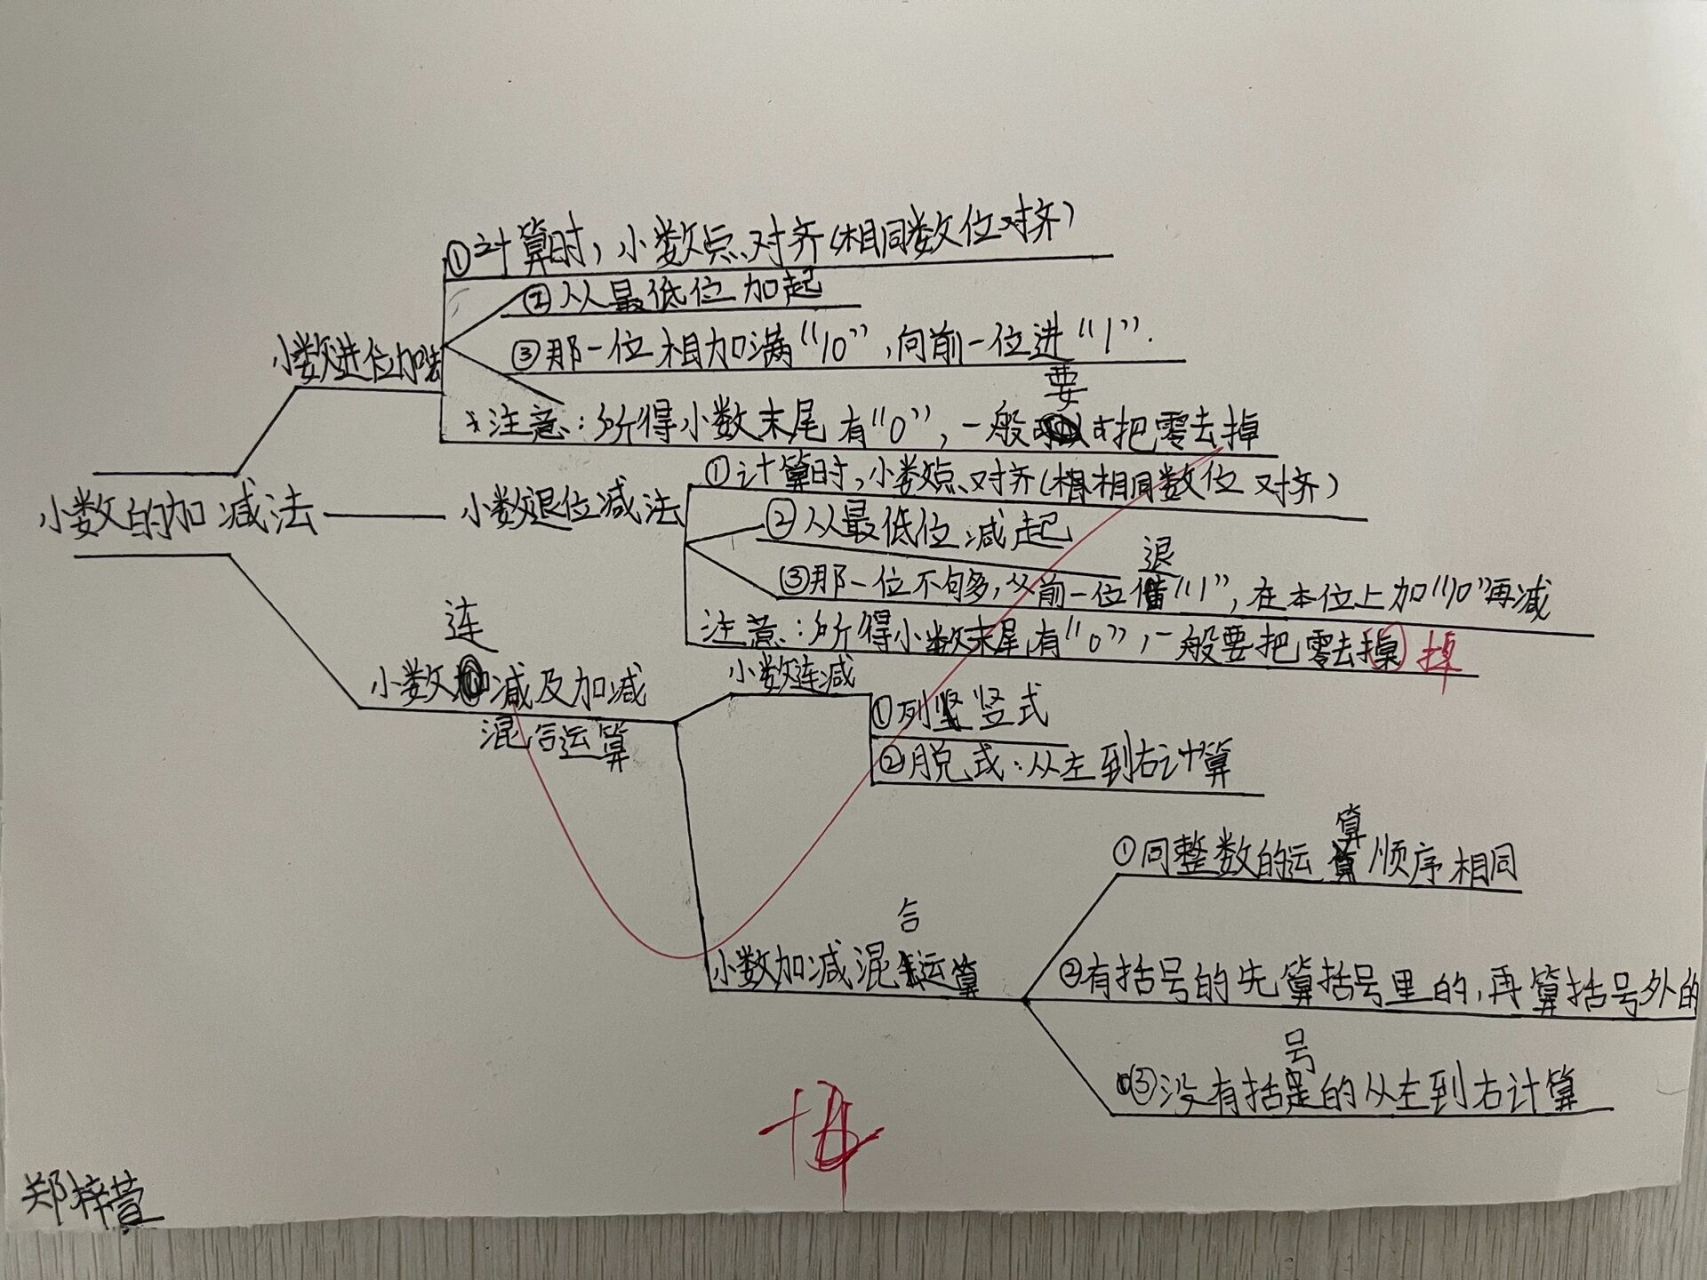 ①计算时，小数点对齐(相同数位对齐)
②从最低位加起
小数进位加法
③那一位相加满“10”,向前一位进“1”.
要
*注意:所得小数末尾有“0”,一般 把零去掉
①计算时,小数点对齐(相同数位对齐)
小数的加减法
小数退位减法
②从最低位减起
退
③那一位不句多,从前一位借“1”,在本位上加“10”再减
注意:所得小数末尾有“0”,一般要把零去掉 掉
连
小数减及加减
混合运算
小数连减
①列竖竖式
②脱式:从左到右计算
算
①同整数的运算顺序相同
合
小数加减混合运算
②有括号的先算括号里的,再算括号外的
号
③没有括号的从左到右计算
郑梓萱